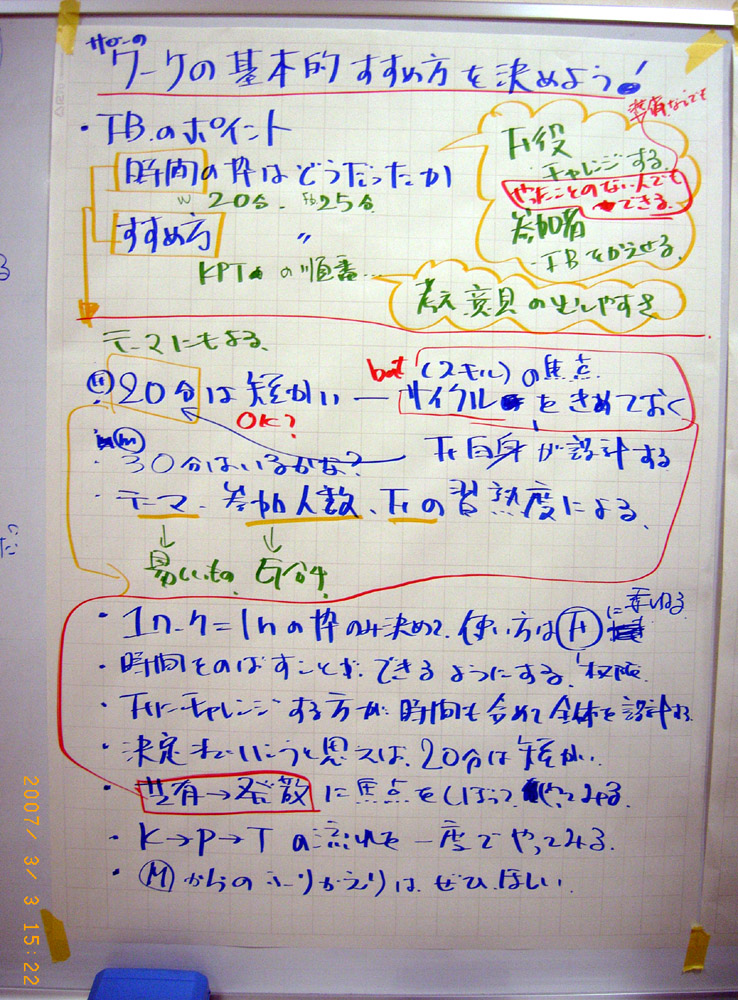 サブローの
ワークの基本的すすめ方を決めよう!
・FB.のポイント
準備なしでも
時間の枠はどうだったか
20分. 25分
すすめ方 〃
KPT の順番...
Fr役
チャレンジする.
やったことのない人でも
できる.
参加者
-FBをかえせる.
考え 意見の出しやすさ
テーマにもよる.
20分は短かい
OK?
but (スキル)の焦点
サイクル をきめておく
Fr自身が設計する
・30分はいるかな?
・テーマ、参加人数、Frの習熟度による.
↓ ↓
易しいもの
・1ワーク=1hの枠のみ決めて、使い方はFrに委ねる
・時間をのばすことができるようにする. 権限
・Frにチャレンジする方が時間も含めて全体を設計する
・決定までいこうと思えば、20分は短かい.
・共有→発散に焦点をしぼってやってみる.
・K→P→Tの流れを一度でやってみる.
・Mからのふりかえりは、ぜひほしい.
2007/ 3/ 3 15:22